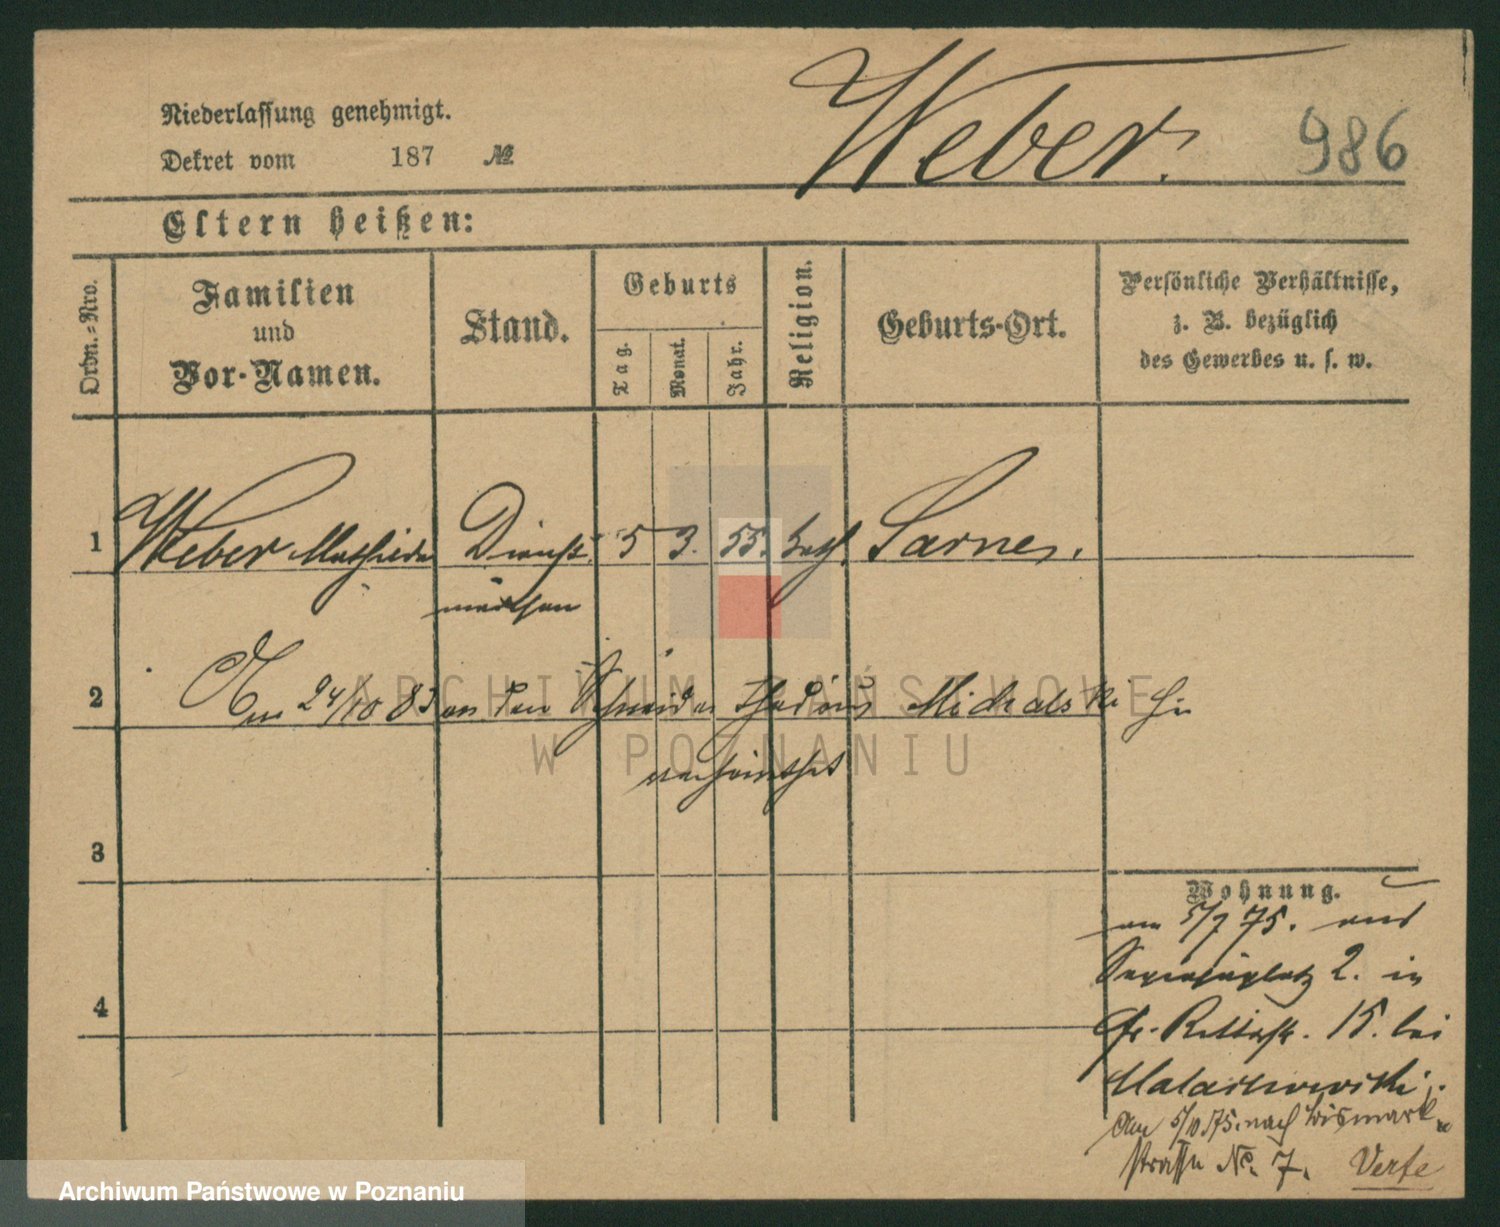 Niederlassung genehmigt.
Dekret vom 187 №
Weber.
986
Eltern heißen:
Ordn.-Nro.
Familien
und
Vor-Namen.
Stand.
Geburts
Tag.
Monat.
Jahr.
Religion.
Geburts-Ort.
Persönliche Verhältnisse,
z. B. bezüglich
des Gewerbes u. s. w.
1 Weber Dienst 5 3. 55. kath. Sarne.
mädchen
2 Am 24/10 83 an den Schneider Michalski
verheirathet
3
Wohnung.
am 5/7 75. aus
2. in
4
Gr. Ritterstr. 15. bei
Am 5/10.75. nach Bismark
strasse No. 7.
ARCHIWUM PAŃSTWOWE
W POZNANIU
Archiwum Państwowe w Poznaniu